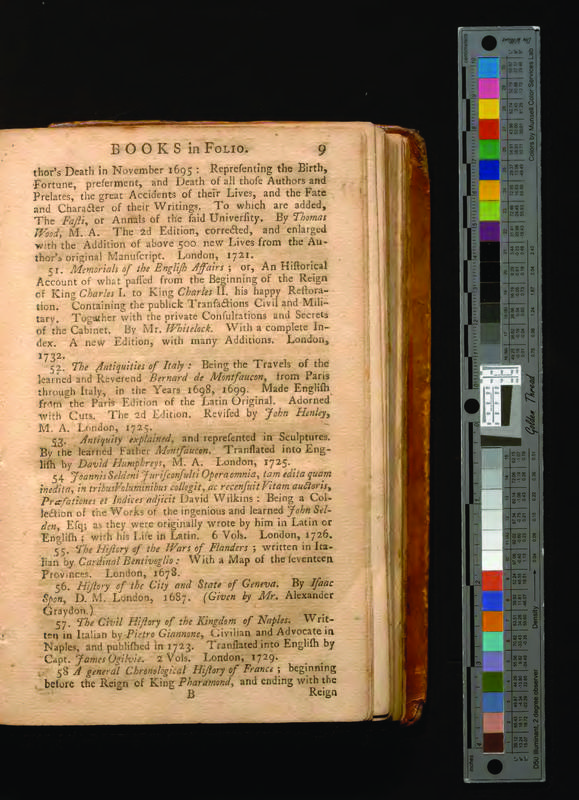 BOOKS in FOLIO. 9
thor's Death in November 1695: Repreſenting the Birth,
Fortune, preferment, and Death of all thoſe Authors and
Prelates, the great Accidents of their Lives, and the Fate
and Character of their Writings. To which are added,
The Faſti, or Annals of the ſaid Univerſity. By Thomas
Wood, M. A. The 2d Edition, corrected, and enlarged
with the Addition of above 500 new Lives from the Au-
thor's original Manuſcript. London, 1721.
51. Memorials of the Engliſh Affairs; or, An Hiſtorical
Account of what paſſed from the Beginning of the Reign
of King Charles I. to King Charles II. his happy Reſtora-
tion. Containing the publick Tranſactions Civil and Mili-
tary. Together with the private Conſultations and Secrets
of the Cabinet. By Mr. Whitelock. With a complete In-
dex. A new Edition, with many Additions. London,
1732.
52. The Antiquities of Italy: Being the Travels of the
learned and Reverend Bernard de Montfaucon, from Paris
through Italy, in the Years 1698, 1699. Made Engliſh
from the Paris Edition of the Latin Original. Adorned
with Cuts. The 2d Edition. Reviſed by John Henley,
M. A. London, 1725.
53. Antiquity explained, and repreſented in Sculptures.
By the learned Father Montfaucon. Tranſlated into Eng-
liſh by David Humphreys, M. A. London, 1725.
54 Joannis Seldeni Juriſconſulti Opera omnia, tam edita quam
inedita, in tribus Voluminibus collegit, ac recenſuit Vitam auctoris,
Præfationes et Indices adjicit David Wilkins: Being a Col-
lection of the Works of the ingenious and learned John Sel-
den, Eſq; as they were originally wrote by him in Latin or
Engliſh; with his Life in Latin. 6 Vols. London, 1726.
55. The Hiſtory of the Wars of Flanders; written in Ita-
lian by Cardinal Bentivoglio: With a Map of the ſeventeen
Provinces. London, 1678.
56. Hiſtory of the City and State of Geneva. By Iſaac
Spon, D. M. London, 1687. (Given by Mr. Alexander
Graydon.)
57. The Civil Hiſtory of the Kingdom of Naples. Writ-
ten in Italian by Pietro Giannone, Civilian and Advocate in
Naples, and publiſhed in 1723. Tranſlated into Engliſh by
Capt. James Ogilvie. 2 Vols. London, 1729.
58 A general Chronological Hiſtory of France; beginning
before the Reign of King Pharamond, and ending with the
B Reign
Colors by Munsell Color Services Lab
Golden Thread
Density
D50 Illuminant, 2 degree observer